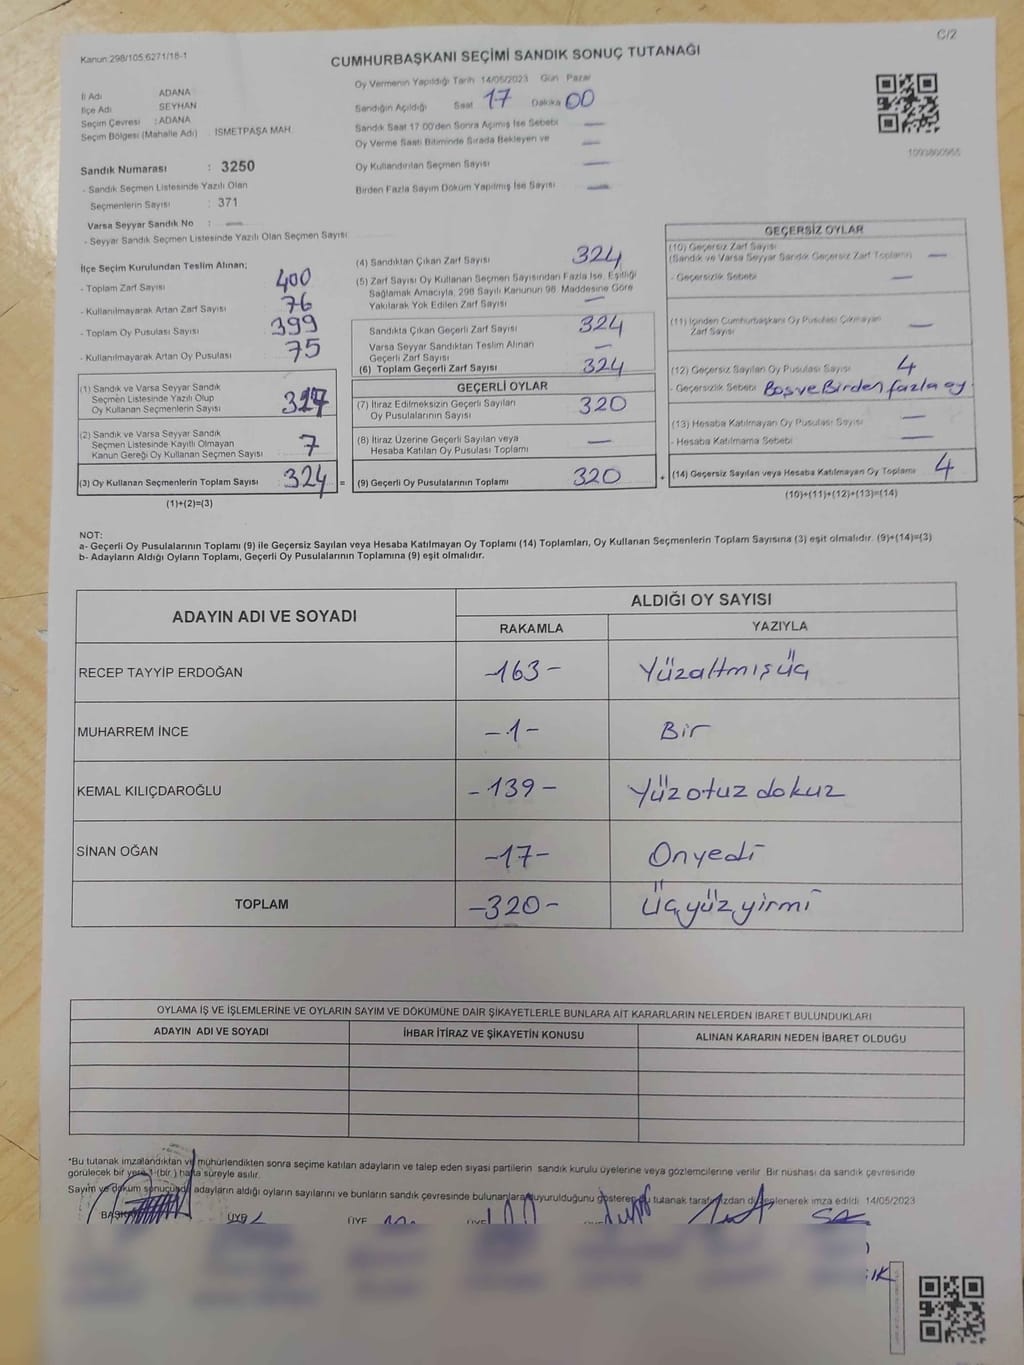 C/2
Kanun:298/105;6271/18-1
CUMHURBAŞKANI SEÇİMİ SANDIK SONUÇ TUTANAĞI
İl Adı ADANA
İlçe Adı SEYHAN
Seçim Çevresi : ADANA
Seçim Bölgesi (Mahalle Adı) İSMETPAŞA MAH.
Sandık Numarası : 3250
- Sandık Seçmen Listesinde Yazılı Olan
Seçmenlerin Sayısı : 371
Varsa Seyyar Sandık No : —
- Seyyar Sandık Seçmen Listesinde Yazılı Olan Seçmen Sayısı:
Oy Vermenin Yapıldığı Tarih 14/05/2023 Gün Pazar
Sandığın Açıldığı Saat 17 Dakika 00
Sandık Saat 17:00'den Sonra Açılmış İse Sebebi —
Oy Verme Saati Bitiminde Sırada Bekleyen ve —
Oy Kullandırılan Seçmen Sayısı —
Birden Fazla Sayım Döküm Yapılmış İse Sayısı —
1093800955
İlçe Seçim Kurulundan Teslim Alınan;
- Toplam Zarf Sayısı 400
- Kullanılmayarak Artan Zarf Sayısı 76
- Toplam Oy Pusulası Sayısı 399
- Kullanılmayarak Artan Oy Pusulası 75
(1) Sandık ve Varsa Seyyar Sandık
Seçmen Listesinde Yazılı Olup
Oy Kullanan Seçmenlerin Sayısı 317
(2) Sandık ve Varsa Seyyar Sandık
Seçmen Listesinde Kayıtlı Olmayan
Kanun Gereği Oy Kullanan Seçmen Sayısı 7
(3) Oy Kullanan Seçmenlerin Toplam Sayısı 324 =
(1)+(2)=(3)
(4) Sandıktan Çıkan Zarf Sayısı 324
(5) Zarf Sayısı Oy Kullanan Seçmen Sayısından Fazla İse, Eşitliği
Sağlamak Amacıyla, 298 Sayılı Kanunun 98. Maddesine Göre
Yakılarak Yok Edilen Zarf Sayısı —
Sandıkta Çıkan Geçerli Zarf Sayısı 324
Varsa Seyyar Sandıktan Teslim Alınan
Geçerli Zarf Sayısı —
(6) Toplam Geçerli Zarf Sayısı 324
GEÇERLİ OYLAR
(7) İtiraz Edilmeksizin Geçerli Sayılan
Oy Pusulalarının Sayısı 320
(8) İtiraz Üzerine Geçerli Sayılan veya
Hesaba Katılan Oy Pusulası Toplamı —
(9) Geçerli Oy Pusulalarının Toplamı 320 +
GEÇERSİZ OYLAR
(10) Geçersiz Zarf Sayısı
(Sandık ve Varsa Seyyar Sandık Geçersiz Zarf Toplamı) —
- Geçersizlik Sebebi —
(11) İçinden Cumhurbaşkanı Oy Pusulası Çıkmayan
Zarf Sayısı —
(12) Geçersiz Sayılan Oy Pusulası Sayısı 4
- Geçersizlik Sebebi Boş ve Birden fazla oy.
(13) Hesaba Katılmayan Oy Pusulası Sayısı —
- Hesaba Katılmama Sebebi —
(14) Geçersiz Sayılan veya Hesaba Katılmayan Oy Toplamı 4
(10)+(11)+(12)+(13)=(14)
NOT:
a- Geçerli Oy Pusulalarının Toplamı (9) ile Geçersiz Sayılan veya Hesaba Katılmayan Oy Toplamı (14) Toplamları, Oy Kullanan Seçmenlerin Toplam Sayısına (3) eşit olmalıdır. (9)+(14)=(3)
b- Adayların Aldığı Oyların Toplamı, Geçerli Oy Pusulalarının Toplamına (9) eşit olmalıdır.
ADAYIN ADI VE SOYADI ALDIĞI OY SAYISI
RAKAMLA YAZIYLA
RECEP TAYYİP ERDOĞAN -163- Yüzaltmışüç
MUHARREM İNCE -1- Bir
KEMAL KILIÇDAROĞLU -139- Yüzotuz dokuz
SİNAN OĞAN -17- Onyedi
TOPLAM -320- Üçyüz yirmi
OYLAMA İŞ VE İŞLEMLERİNE VE OYLARIN SAYIM VE DÖKÜMÜNE DAİR ŞİKAYETLERLE BUNLARA AİT KARARLARIN NELERDEN İBARET BULUNDUKLARI
ADAYIN ADI VE SOYADI İHBAR İTİRAZ VE ŞİKAYETİN KONUSU ALINAN KARARIN NEDEN İBARET OLDUĞU
*Bu tutanak imzalandıktan ve mühürlendikten sonra seçime katılan adayların ve talep eden siyasi partilerin sandık kurulu üyelerine veya gözlemcilerine verilir. Bir nüshası da sandık çevresinde
görülecek bir yere 1 (bir) hafta süreyle asılır.
Sayım ve döküm sonucunda adayların aldığı oyların sayılarını ve bunların sandık çevresinde bulunanlara duyurulduğunu gösteren bu tutanak tarafımızdan düzenlenerek imza edildi. 14/05/2023
BAŞKAN ÜYE ÜYE ÜYE